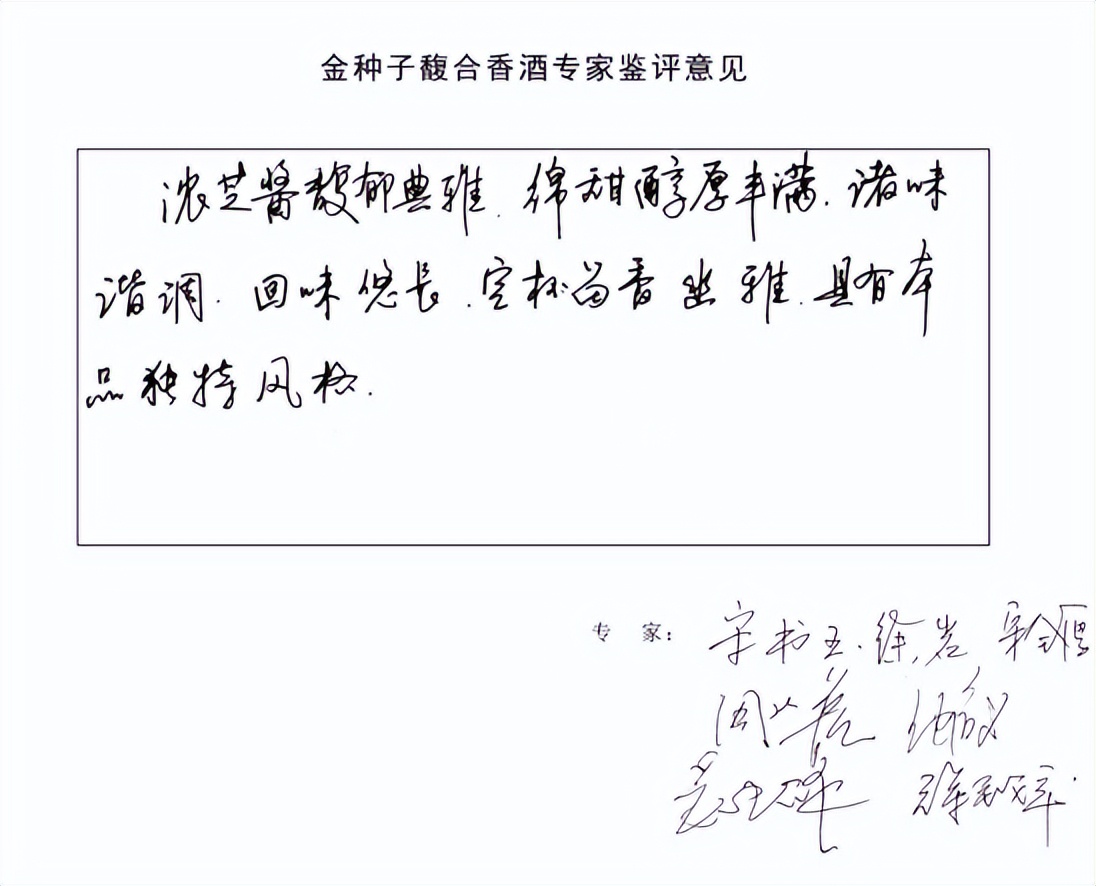 金种子馥合香酒专家鉴评意见
浓芝醬馥郁典雅.绵甜醇厚丰满.诸味
谐调.回味悠长.空杯留香幽雅.具有本
品独特风格.
专 家：宋书玉.徐岩